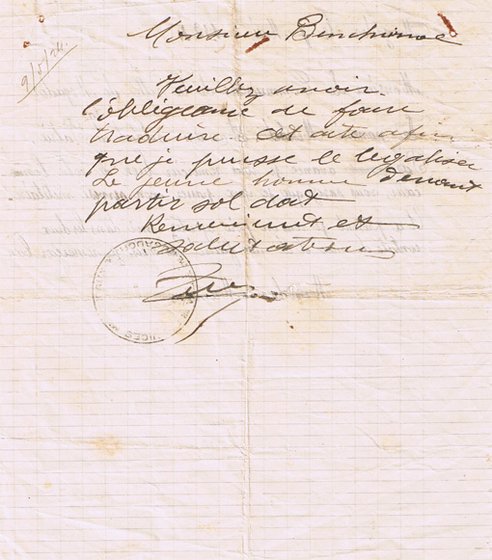 Monsieur Benchimol
9/5/24.
Veuillez avoir
l'obligeance de faire
traduire cet acte afin
que je puisse le legaliser
Le jeune homme devant
partir soldat
Remerciments et
salutations